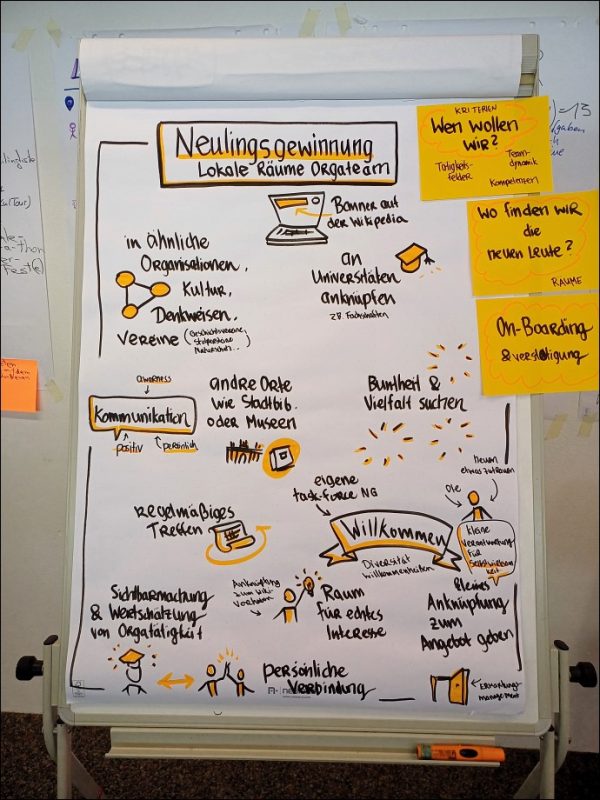 Neulingsgewinnung
Lokale Räume Orgateam
KRITERIEN
Wen wollen
wir?
Tätigkeits-
felder
Team-
dynamik
Kompetenzen
Wo finden wir
die
neuen Leute?
RÄUME
On-Boarding
& verstätigung
Banner auf
der Wikipedia
in ähnliche
Organisationen,
Kultur,
Denkweisen,
Vereine (Geschichtsvereine,
Stolpersteine
Naturschutz...
an
Universitäten
anknüpfen
z.B. Fachschaften
awareness
Kommunikation
positiv
persönlich
andre Orte
wie Stadtbib.
oder Museen
Buntheit &
Vielfalt suchen
regelmäßiges
Treffen
eigene
task-force NG
Willkommen
Diversität
willkommenheißen
Neuen
etwas zutrauen
kleine
Verantwortung
für
Selbstwirksam
keit
Sichtbarmachung
& Wertschätzung
von Orgatätigkeit
Anknüpfung
zum
Raum
für echtes
Interesse
kleines
Anknüpfung
zum
Angebot geben
persönliche
Verbindung
management